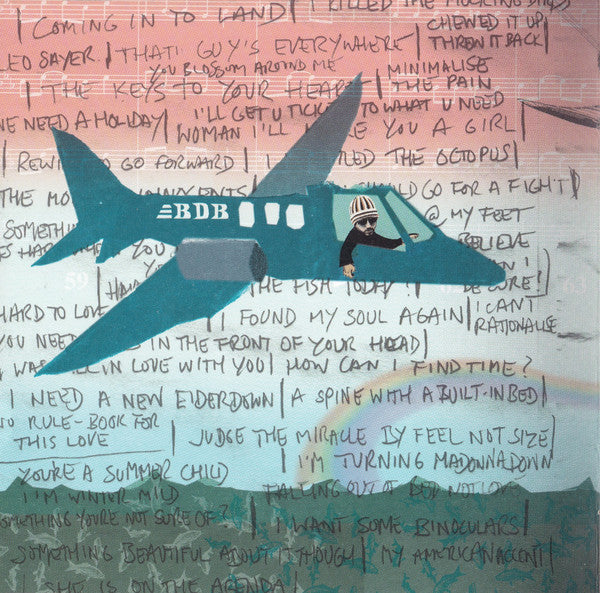 COMING IN TO LAND | I KILLED THE MOCKING BIRDS
CHEWED IT UP,
THREW IT BACK |
LEO SAYER. | THAT GUY'S EVERYWHERE
YOU BLOSSOM AROUND ME
MINIMALISE
THE PAIN
| THE KEYS TO YOUR HEART |
I'LL GET U TICKETS TO WHAT U NEED
WE NEED A HOLIDAY | WOMAN I'LL YOU A GIRL |
| REWIND TO GO FORWARD | THE OCTOPUS |
THE GO FOR A FIGHT
BDB
@ MY FEET
SOMETHING
BELIEVE
YOU
THE FISH TODAY! BE CURE! |
59
63
HARD TO LOVE | I FOUND MY SOUL AGAIN | I CAN'T
RATIONALISE
YOU NEED IN THE FRONT OF YOUR HEAD |
WAS IN LOVE WITH YOU | HOW CAN I FIND TIME?
I NEED A NEW EIDERDOWN | A SPINE WITH A BUILT-IN BED |
NO RULE-BOOK FOR
THIS LOVE
| JUDGE THE MIRACLE BY FEEL NOT SIZE |
YOU'RE A SUMMER CHILD
I'M TURNING MADONNA DOWN
I'M WINTER MILD
FALLING OUT OF BED NOT LOVE
SOMETHING YOU'RE NOT SURE OF? | I WANT SOME BINOCULARS |
SOMETHING BEAUTIFUL ABOUT IT THOUGH | MY AMERICAN ACCENT |
| SHE IS ON THE AGENDA |